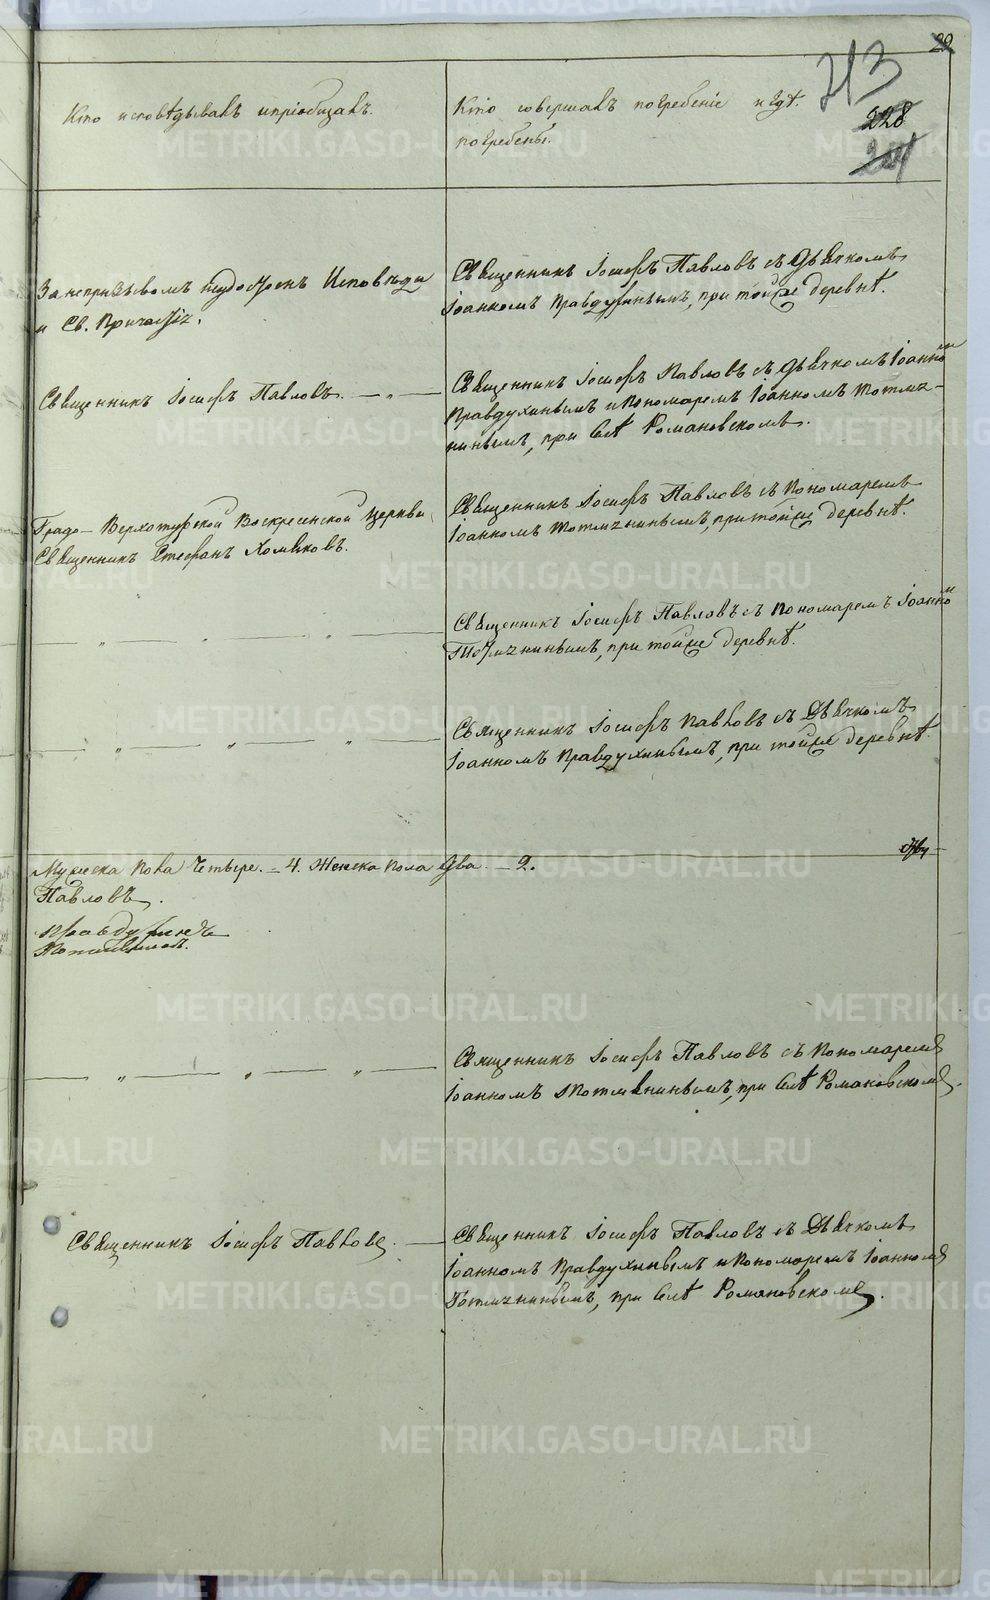 29
213
228
Кто исповѣдывалъ и пріобщалъ.
Кто совершалъ погребеніе и гдѣ
погребены.
За непризывомъ неудостоенъ Исповѣди
и Св. Причастія.
Священникъ Іосифъ Павловъ съ Дьячкомъ
Іоанномъ Правдухинымъ, при тойже деревнѣ.
Священникъ Іосифъ Павловъ. — „ —
Священникъ Іосифъ Павловъ съ Дьячкомъ Іоанномъ
Правдухинымъ и Пономаремъ Іоанномъ Тотмя-
нинымъ, при Селѣ Романовскомъ.
Градо-Верхотурской Воскресенской церкви
Священникъ Стефанъ Хомяковъ.
Священникъ Іосифъ Павловъ съ Пономаремъ
Іоанномъ Тотмянинымъ, при тойже деревнѣ.
— „ — „ — „ —
Священникъ Іосифъ Павловъ съ Пономаремъ Іоанномъ
Тотмянинымъ, при тойже деревнѣ.
— „ — „ — „ —
Священникъ Іосифъ Павловъ съ Дьячкомъ
Іоанномъ Правдухинымъ, при тойже деревнѣ.
Мужеска пола Четыре. — 4. Женска пола Два. — 2.
Павловъ.
Правдухинъ
— „ — „ — „ —
Священникъ Іосифъ Павловъ съ Пономаремъ
Іоанномъ Тотмянинымъ, при Селѣ Романовскомъ.
Священникъ Іосифъ Павловъ. —
Священникъ Іосифъ Павловъ съ Дьячкомъ
Іоанномъ Правдухинымъ и Пономаремъ Іоанномъ
Тотмянинымъ, при Селѣ Романовскомъ.
METRIKI.GASO-URAL.RU